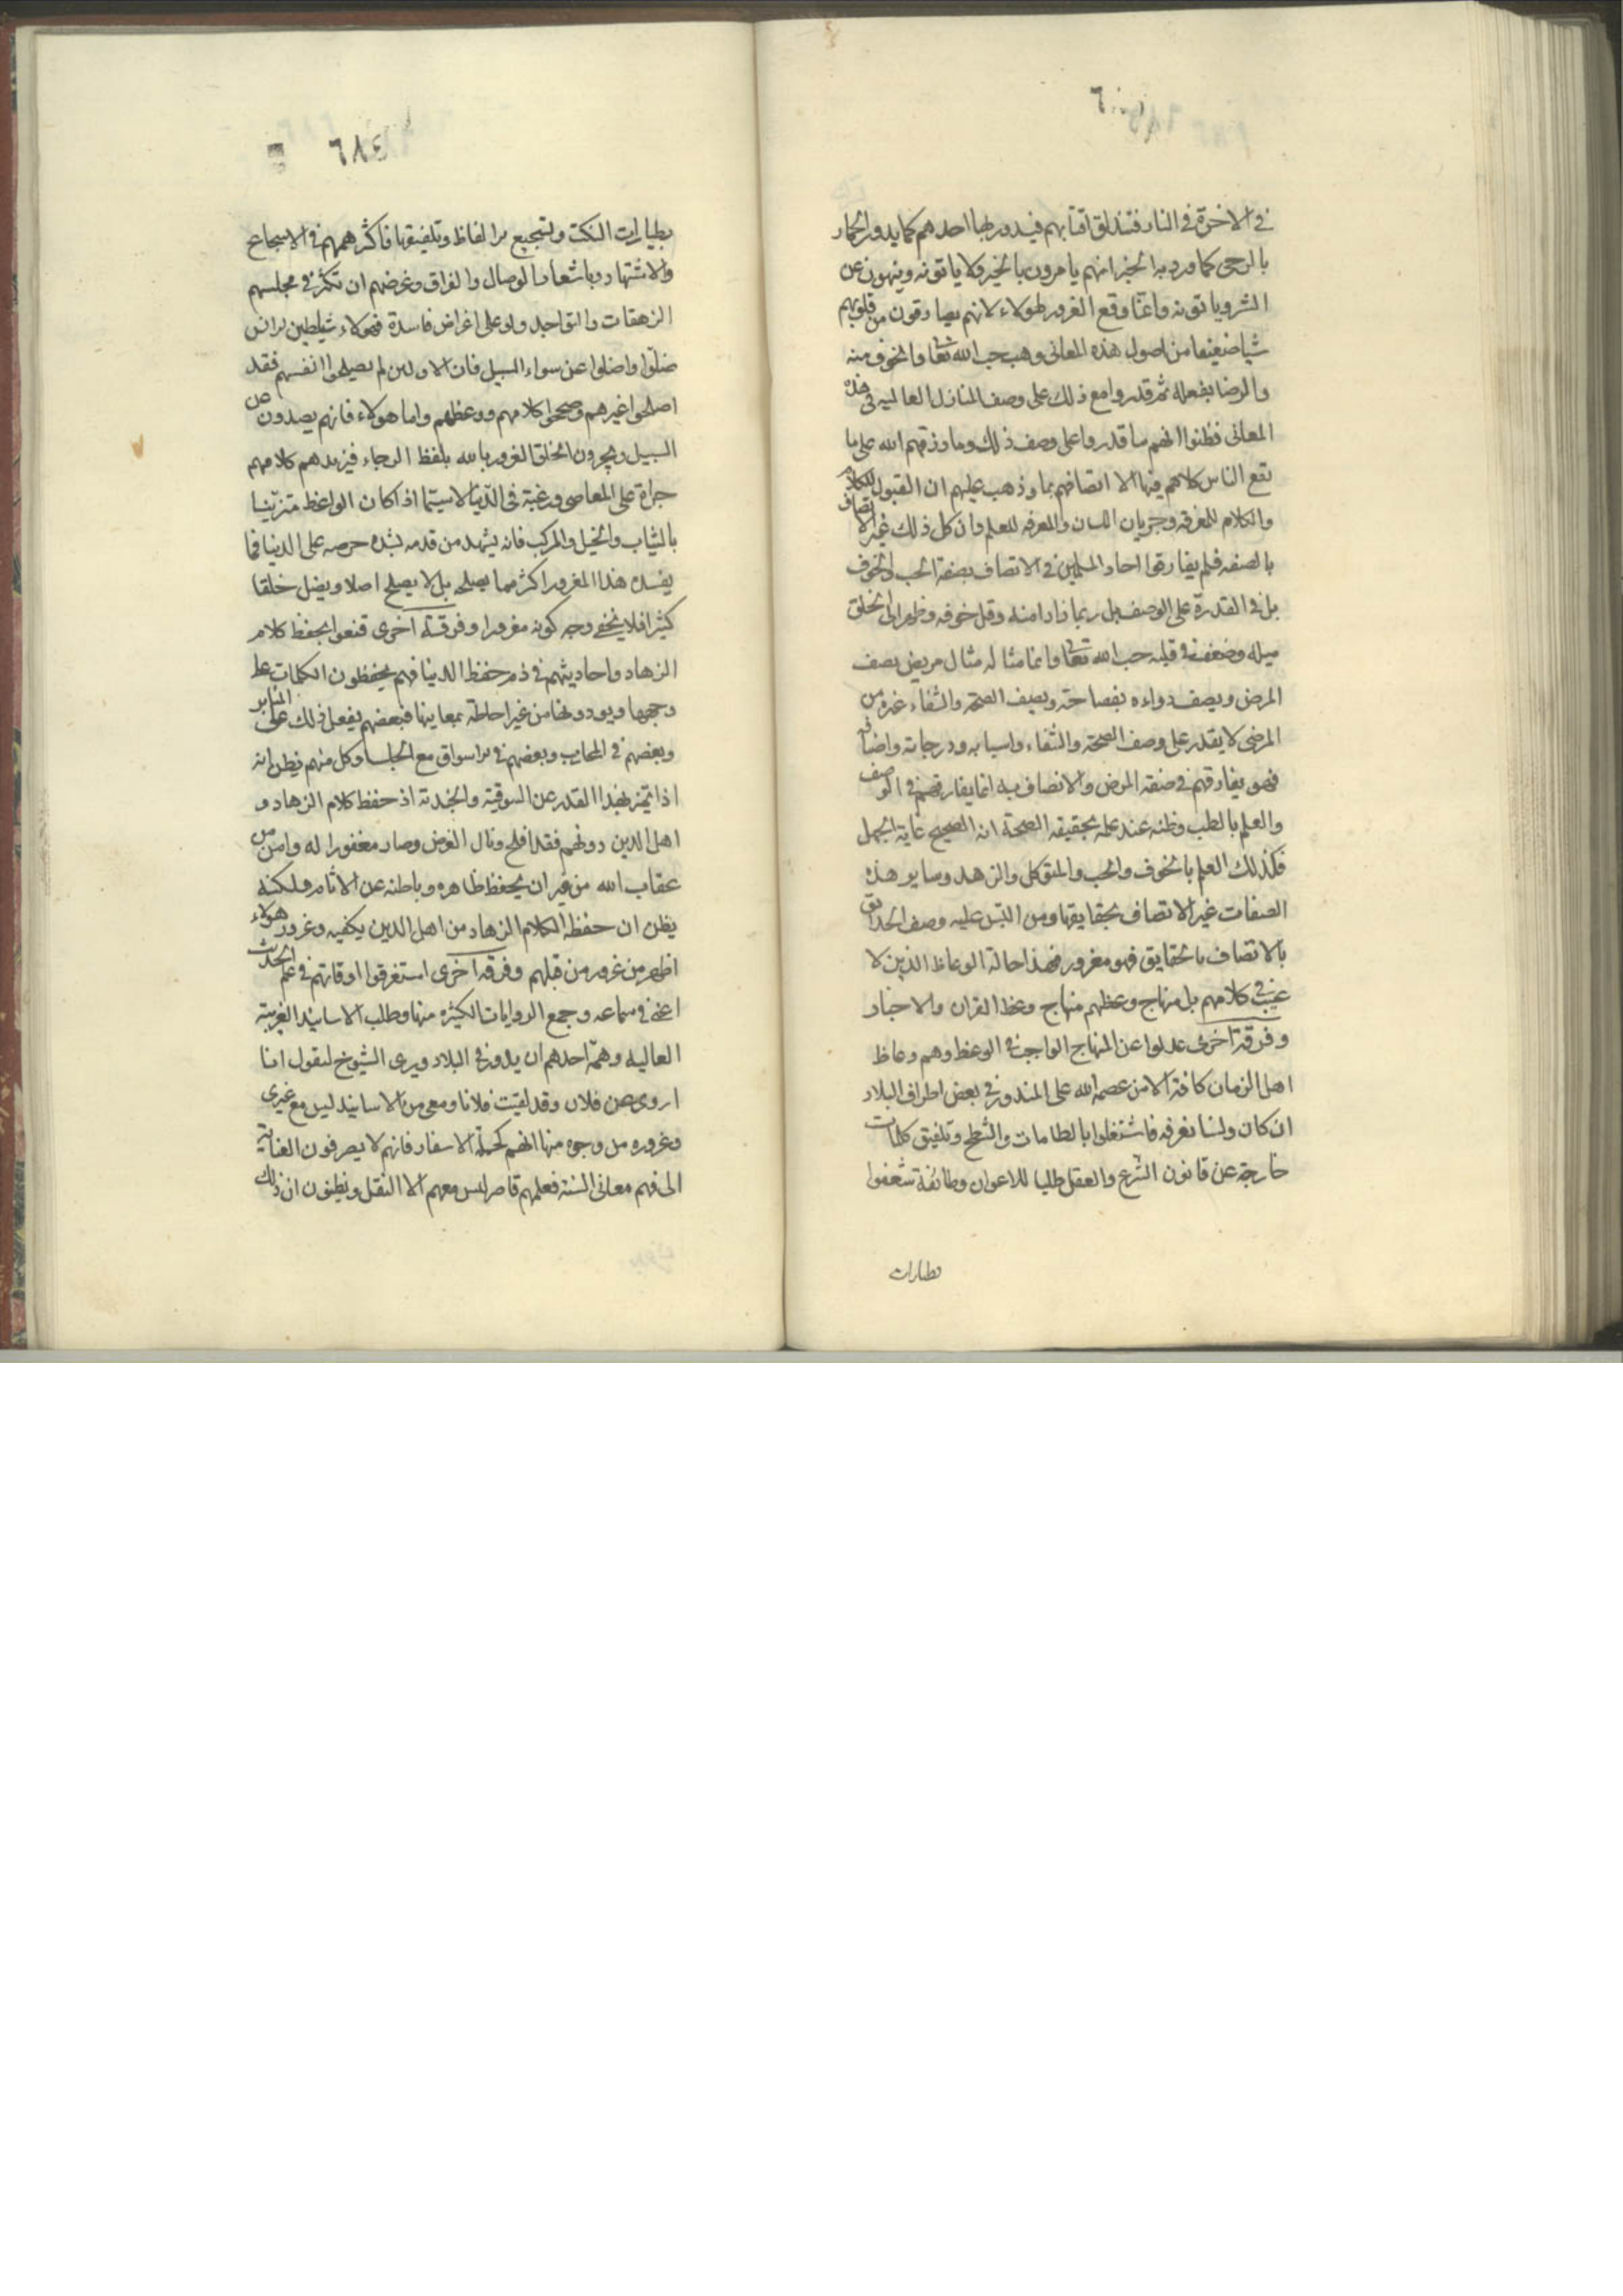 في الاخرة في النار فتندلق اقتابهم فيدور بها احدهم كما يدور الحمار
بالرحى كما ورد به الخبر انهم يامرون بالخير ولا ياتونه وينهون عن
الشر وياتونه وانما وقع الغرور لهولاء لانهم يصادقون من قلوبهم
شيا ضعيفا من اصول هذه المعانى وهب حب الله تعا والخوف منه
والرضا بفعله ثم قدروا مع ذلك على وصف المنازل العاليه في هذه
المعانى فظنوا انهم ما قدروا على وصف ذلك وما رزقهم الله على ما
نفع الناس كلامهم فيها الا اتصافهم بما وذهب عليهم ان القبول للكلام
والكلام للمعرفه وجريان اللسان والمعرفه للعلم وان كل ذلك غير الاتصاف
بالصفه فلم يفارقوا احاد المسلمين في الاتصاف بصفة الحب والخوف
بل في القدرة على الوصف بل ربما زاد امنه وقل خوفه وظهر الى الخلق
ميله وضعف في قلبه حب الله تعا وانما مثاله مثال مريض يصف
المرض ويصف دواءه بفصاحته ويصف الصحة والشفاء غيره من
المرضى لا يقدر على وصف الصحة والشفاء واسبابه ودرجاته واصنافه
فهو يفارقهم في صفة المرض والاتصاف به انما يفارقهم في الوصف
والعلم بالطب وظنه عند علمه بحقيقة الصحة انه الصحيح غاية الجهل
فكذلك العلم بالخوف والحب والتوكل والزهد وساير هذه
الصفات غير الاتصاف بحقايقها ومن التبس عليه وصف الحقايق
بالاتصاف بالحقايق فهو مغرور فهذا حالة الوعاظ الذين لا
عيب في كلامهم بل منهاج وعظهم منهاج وعظ القران والاخبار
وفرقة اخرى عدلوا عن المنهاج الواجب في الوعظ وهم وعاظ
اهل الزمان كافة الا من عصمه الله على الندور في بعض اطراف البلاد
ان كان ولسنا نعرفه فاشتغلوا بالطامات والشطح وتلفيق كلمات
خارجة عن قانون الشرع والعقل طلبا للاعوان وطائفة شغفوا
بطيارات
٦٨٤
بطيارات النكت وتسجيع الالفاظ وتلفيقها فاكثر هممهم في الاسجاع
والاشتهاد باشعار الوصال والفراق وغرضهم ان تكثر في مجلسهم
الزعقات والتواجد ولو على اغراض فاسدة فهولاء شياطين الانس
ضلوا واضلوا عن سواء السبيل فان الاولين لم يصلحوا انفسهم فقد
اصلحوا غيرهم وصححوا كلامهم ووعظهم واما هولاء فانهم يصدون عن
السبيل ويجرون الخلق الغرور بالله بلفظ الرجاء فيزيدهم كلامهم
جراة على المعاصى ورغبة في الدنيا لاسيما اذا كان الواعظ متزينا
بالثياب والخيل والمركب فانه يشهد من قدمه بشده حرصه على الدنيا فما
يفسده هذا المغرور اكثر مما يصلح بل لا يصلح اصلا ويضل خلقا
كثيرا فلا يخفى وجه كونه مغرورا وفرقة اخرى قنعوا بحفظ كلام
الزهاد واحاديثهم في ذم حفظ الدنيا فهم يحفظون الكلمات على
وجهها ويودونها من غير احاطة بمعانيها فبعضهم يفعل ذلك على المنابر
وبعضهم في المحاريب وبعضهم في الاسواق مع الجلسا وكل منهم يظن انه
اذا تميز بهذا القدر عن السوقية والجندية اذ حفظ كلام الزهاد و
اهل الدين دونهم فقد افلح ونال الغرض وصار مغفورا له وامن من
عقاب الله من غير ان يحفظ ظاهره وباطنه عن الاثام ولكنه
يظن ان حفظه الكلام الزهاد من اهل الدين يكفيه وغرور هولاء
اظهر من غرور من قبلهم وفرقه اخرى استغرقوا اوقاتهم في علم الحديث
اعني في سماعه وجمع الروايات الكثيره منها وطلب الاسانيد الغريبة
العاليه وهمة احدهم ان يدور في البلاد ويرى الشيوخ ليقول انا
اروى عن فلان وقد لقيت فلانا ومعي من الاسانيد ليس مع غيرى
وغروره من وجوه منها انهم كحملة الاسفار فانهم لا يصرفون العناية
الى فهم معانى السنة فعلمهم قاصر ليس معهم الا النقل ويظنون ان ذلك